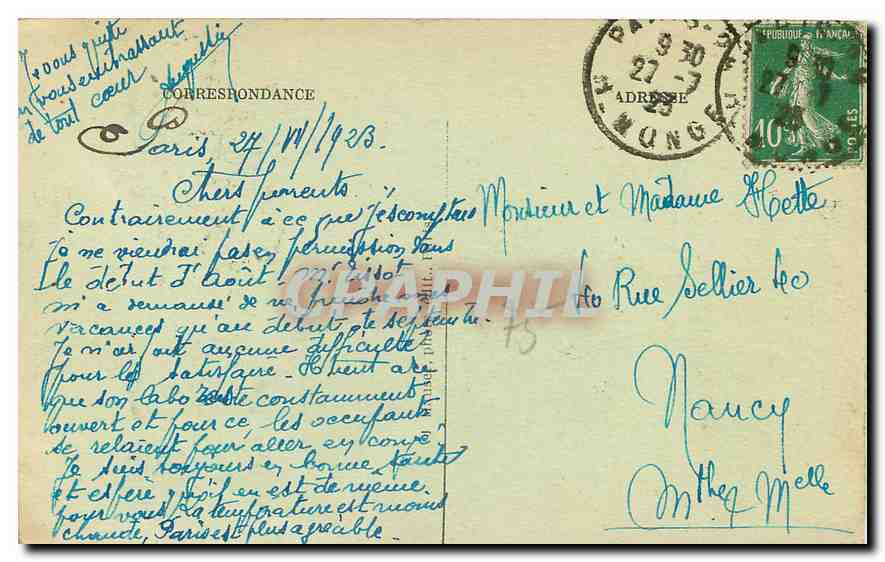 Je vous quitte
en vous embrassant
de tout cœur
Augustin
CORRESPONDANCE
ADRESSE
9 30
27 - 7
23
R. MONGE
RÉPUBLIQUE FRANÇAISE
POSTES
10c
Paris, 27/VII/1923.
Chers parents.
Contrairement à ce que j'escomptais
Je ne viendrai pas en permission dans
le début d'Août. Mr
m'a demandé de ne prendre mes
vacances qu'au début de septembre.
Je n'ai fait aucune difficulté
pour le satisfaire. Il veut
que son labo reste constamment
ouvert et pour ce, les occupants
se relaient pour aller en congé.
Je suis toujours en bonne santé
et espère qu'il en est de même
pour vous. La température est moins
chaude, Paris est plus agréable.
Monsieur et Madame Hette
40 Rue Sellier 40
Nancy
Mthe & Melle
75
CPARAPHIL